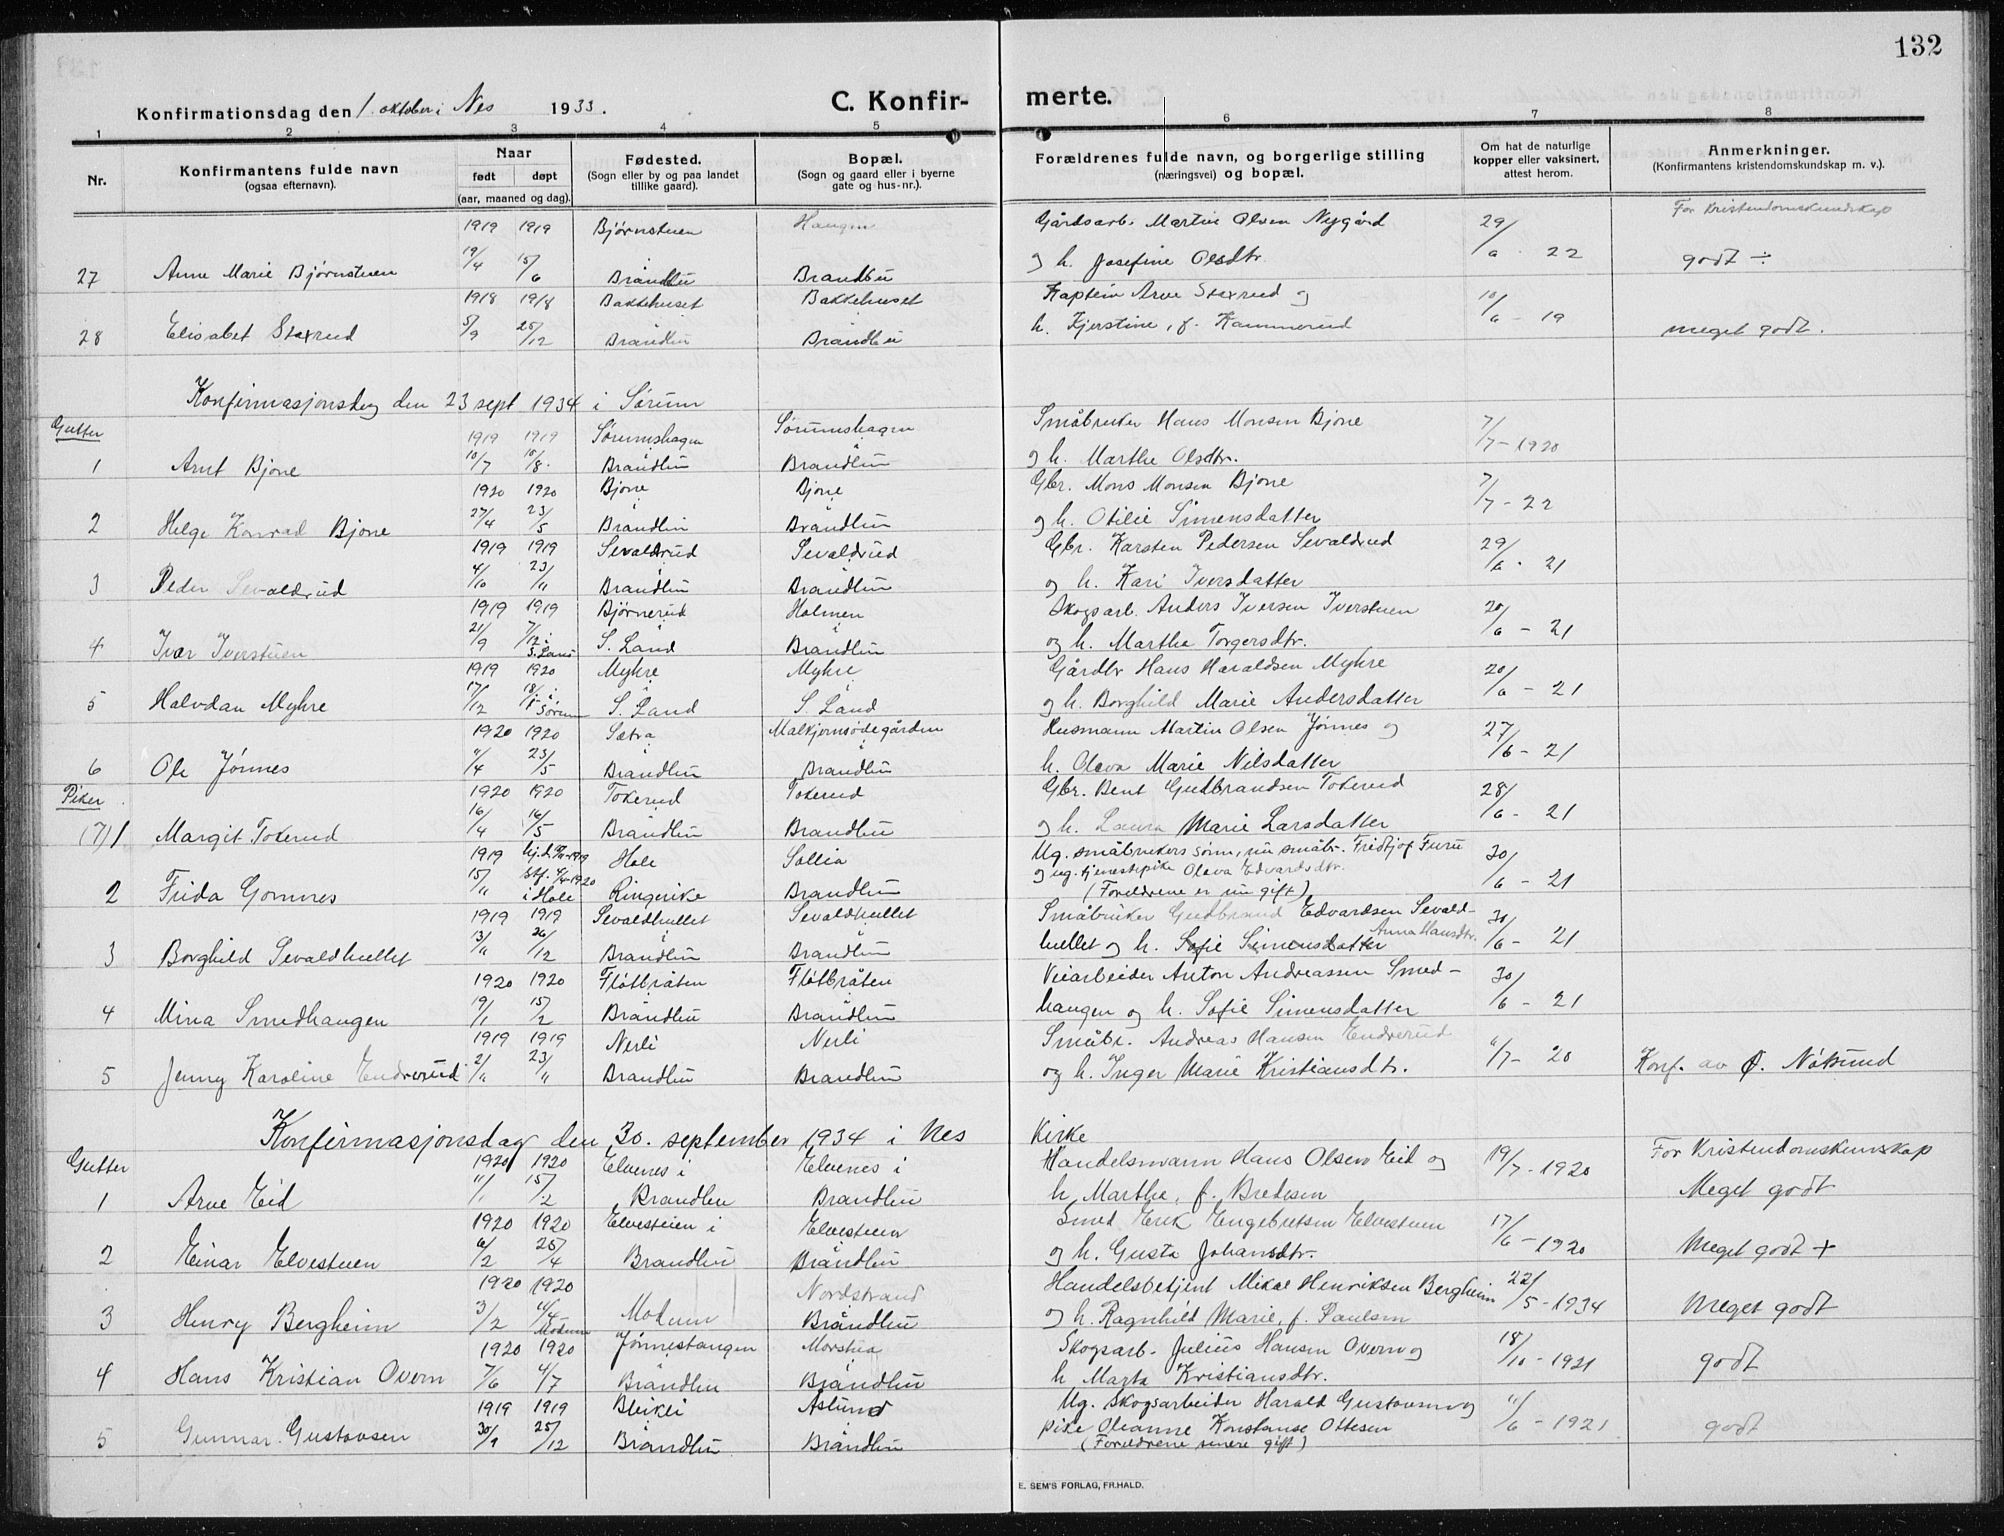 132
Konfirmationsdag den 1. oktober i Nes 1933.
C. Konfirmerte.
1 2 3 4 5 6 7 8
Nr.
Konfirmantens fulde navn
(ogsaa efternavn).
Naar
født døpt
(aar, maaned og dag).
Fødested.
(Sogn eller by og paa landet
tillike gaard).
Bopæl.
(Sogn og gaard eller i byerne
gate og hus-nr.).
Forældrenes fulde navn, og borgerlige stilling
(næringsvei) og bopæl.
Om hat de naturlige
kopper eller vaksinert,
attest herom.
Anmerkninger.
(Konfirmantens kristendomskundskap m. v.).
1919 1919 Bjørnstuen Haugen Gårdsarb. Martin Olsen Nygård 29/ For Kristendomskundskap
27 Anne Marie Bjørnstuen 19/4 15/6 Brandbu Brandbu og h. Josefine Olsdtr. 6 - 22 godt ÷
1918 1918 Bakkehuset Bakkehuset Kaptein Arve Staxrud og 10/
28 Elisabet Staxrud 5/9 25/12 Brandbu Brandbu h. Kjerstine, f. Kammerud 6 - 19 meget godt.
Konfirmasjonsdag den 23 sept 1934 i Sørum
Gutter 1919 1919 Sørumshagen Sørumshagen Småbruker Hans Monsen Bjone 7/
1 Arnt Bjone 10/7 10/8. Brandbu Brandbu og h. Marthe Olsdtr. 7 - 1920
1920 1920 Bjone Bjone Gbr. Mons Monsen Bjone 7/
2 Helge Konrad Bjone 27/4 23/5 Brandbu Brandbu og h. Otilie Simensdatter 7 - 22
1919 1919 Sevaldrud Sevaldrud Gbr. Karsten Pedersen Sevaldrud 29/
3 Peder Sevaldrud 4/10 23/11 Brandbu Brandbu og h. Kari Iversdatter 6 - 21
1919 1919 Bjørnerud Holmen Skogsarb. Anders Iversen Iverstuen 20/
4 Ivar Iverstuen 21/9 7/12 i S. Land S. Land Brandbu og h. Marthe Torgersdtr. 6 - 21
1919 1920 Myhre Myhre Gårdbr Hans Haraldsen Myhre 20/
5 Halvdan Myhre 17/12 18/1 i Sørum S. Land S. Land og h. Borghild Marie Andersdatter 6 - 21
1920 1920 Sætra Malkjernsødegården Husmann Martin Olsen Jønnes og 27/
6 Ole Jønnes 11/4 23/5 Brandbu Brandbu h. Olava Marie Nilsdatter 6 - 21
Piker 1920 1920 Tokerud Tokerud Gbr. Bent Gudbrandsen Tokerud 28/
(7) 1 Margit Tokerud 16/4 16/5 Brandbu Brandbu og h. Laura Marie Larsdatter 6 - 21
1919 Hole Sollia Ug. småbrukers sønn, nu småbr. Fridtjof Furu 30/
2 Frida Gomnes 15/11 stf. 4/4-1920 i Hole Ringerike Brandbu og ug. tjenestepike Olava Edvardsdtr. 6 - 21
(Foreldrene er nu gift)
1919 1919 Sevaldhullet Sevaldhullet Småbruker Gudbrand Edvardsen Sevald- 30/
3 Borghild Sevaldhullet 13/11 26/12 Brandbu Brandbu hullet og h. Sofie Simensdatter Anna Hansdtr. 6 - 21
1920 1920 Fløtbråten Fløtbråten Veiarbeider Anton Andreassen Smed- 30/
4 Mina Smedhaugen 19/1 15/2 Brandbu Brandbu haugen og h. Sofie Simensdatter 6 - 21
1919 1919 Nerli Nerli Småbr. Andreas Hansen Endrerud
5 Jenny Karoline Endrerud 2/11 23/11 Brandbu Brandbu og h. Inger Marie Kristiansdtr. 11/7 - 20 Konf. av Ø. Nøkund
Konfirmasjonsdag den 30. september 1934 i Nes Kirke
Gutter 1920 1920 Elvenes i Elvenes i Handelsmann Hans Olsen Eid og 19/7 - 1920 For Kristendomskunskap
1 Arve Eid 11/1 15/2 Brandbu Brandbu h Marthe, f. Bredesen Meget godt
1920 1920 Elvestuen i Elvestuen Smed Erik Engebretsen Elvestuen 17/
2 Einar Elvestuen 6/2 25/4 Brandbu Brandbu og h. Gusta Johansdtr. 6 - 1920 Meget godt +
1920 1920 Nordstrand Handelsbetjent Mikal Henriksen Bergheim 22/
3 Henry Bergheim 3/2 11/4 Modum Modum Brandbu og h. Ragnhild Marie, f. Paulsen 5 - 1934 Meget godt
1920 1920 Jønnestangen Morstua Skogsarb. Julius Hansen Overn og 18/
4 Hans Kristian Overn 7/6 4/7 Brandbu Brandbu h Marta Kristiansdtr. 10 - 1921 godt
1919 1919 Bleikli Aslund Ug. Skogsarbeider Harald Gustavsen og 11/
5 Gunnar Gustavsen 30/9 25/12 Brandbu Brandbu pike Oleanne Konstanse Ottesen 6 - 1921 godt
(Foreldrene senere gift)
E. SEM'S FORLAG, FR.HALD.